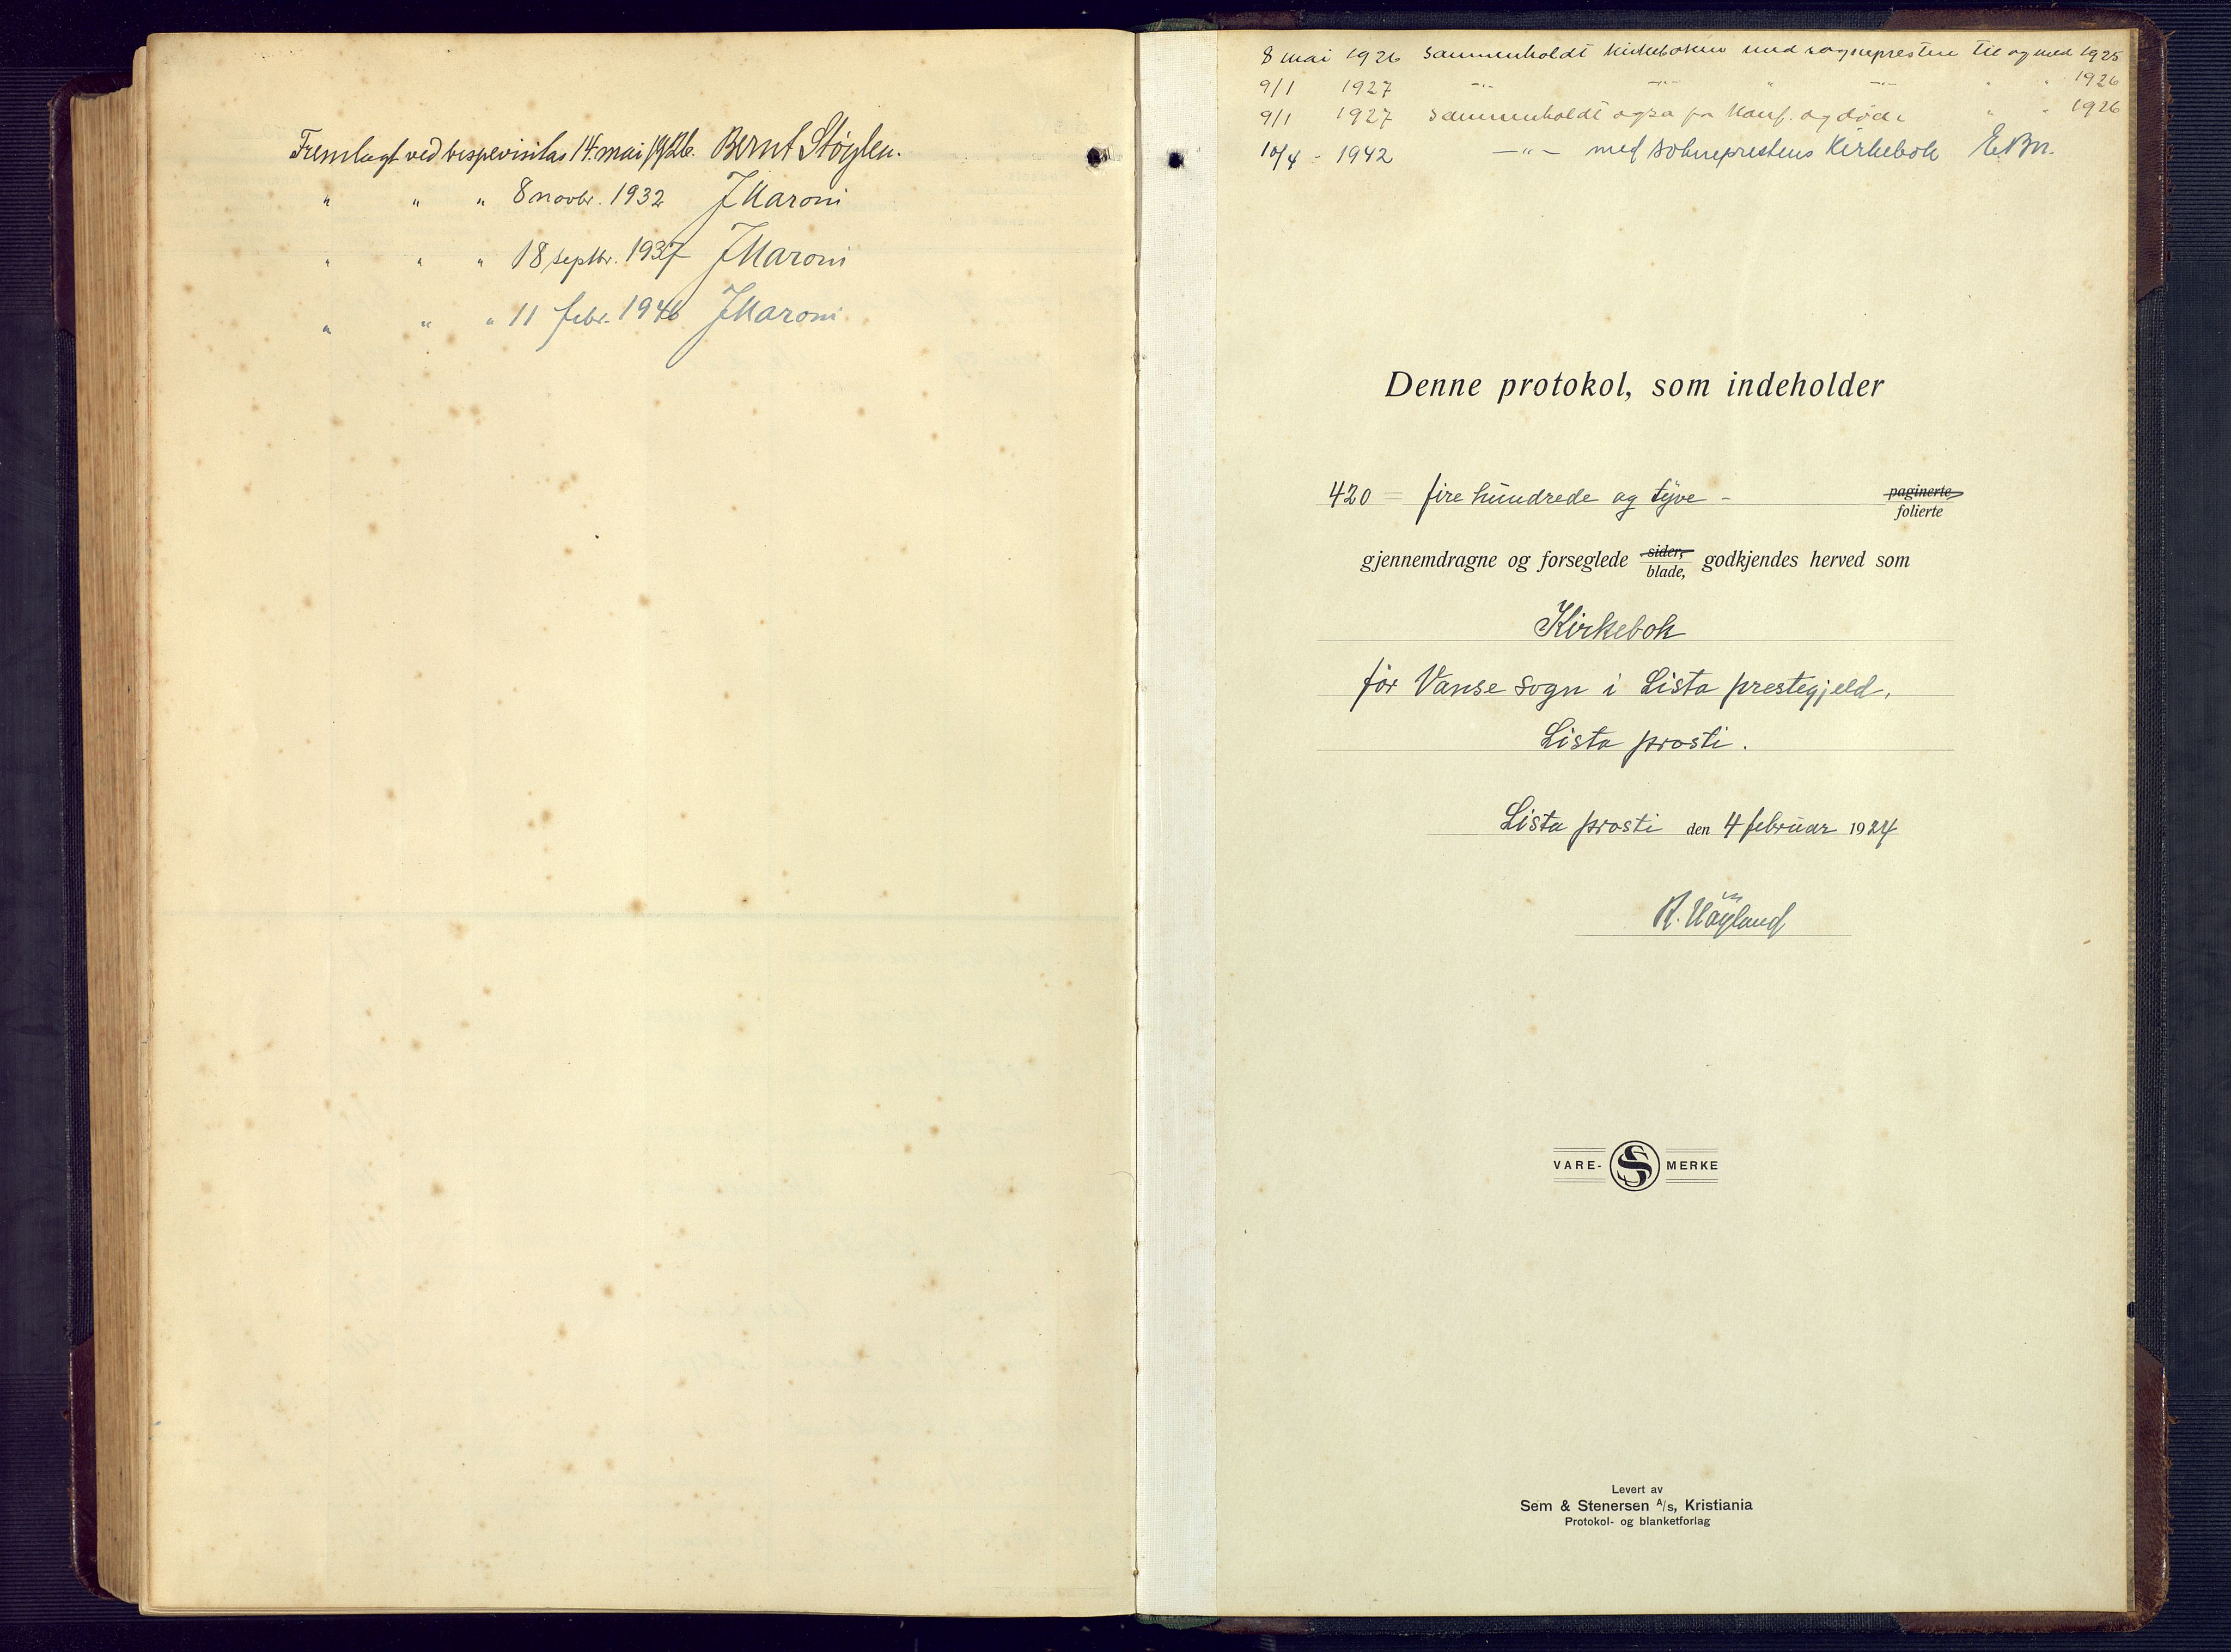 Fremlagt ved bispevisitas 14. mai 1926. Bernt Støylen.
" " " 8 novbr. 1932 J Maroni
" " " 18 septbr. 1937 J Maroni
" " " 11 febr. 1946 J Maroni
8 mai 1926 Sammenholdt kirkeboken med sogneprestens til og med 1925
9/1 1927 -"- -"- " -"- " " 1926
9/1 1927 Sammenholdt også for konf. og døde " " 1926
10/4 - 1942 -"- med sokneprestens Kirkebok
Denne protokol, som indeholder
420 = fire hundrede og tyve - paginerte
folierte
gjennemdragne og forseglede sider, godkjendes herved som
blade,
Kirkebok
for Vanse sogn i Lista prestegjeld,
Lista prosti.
Lista prosti den 4 februar 1924
VARE- SS MERKE
Levert av
Sem & Stenersen A/s, Kristiania
Protokol- og blanketforlag